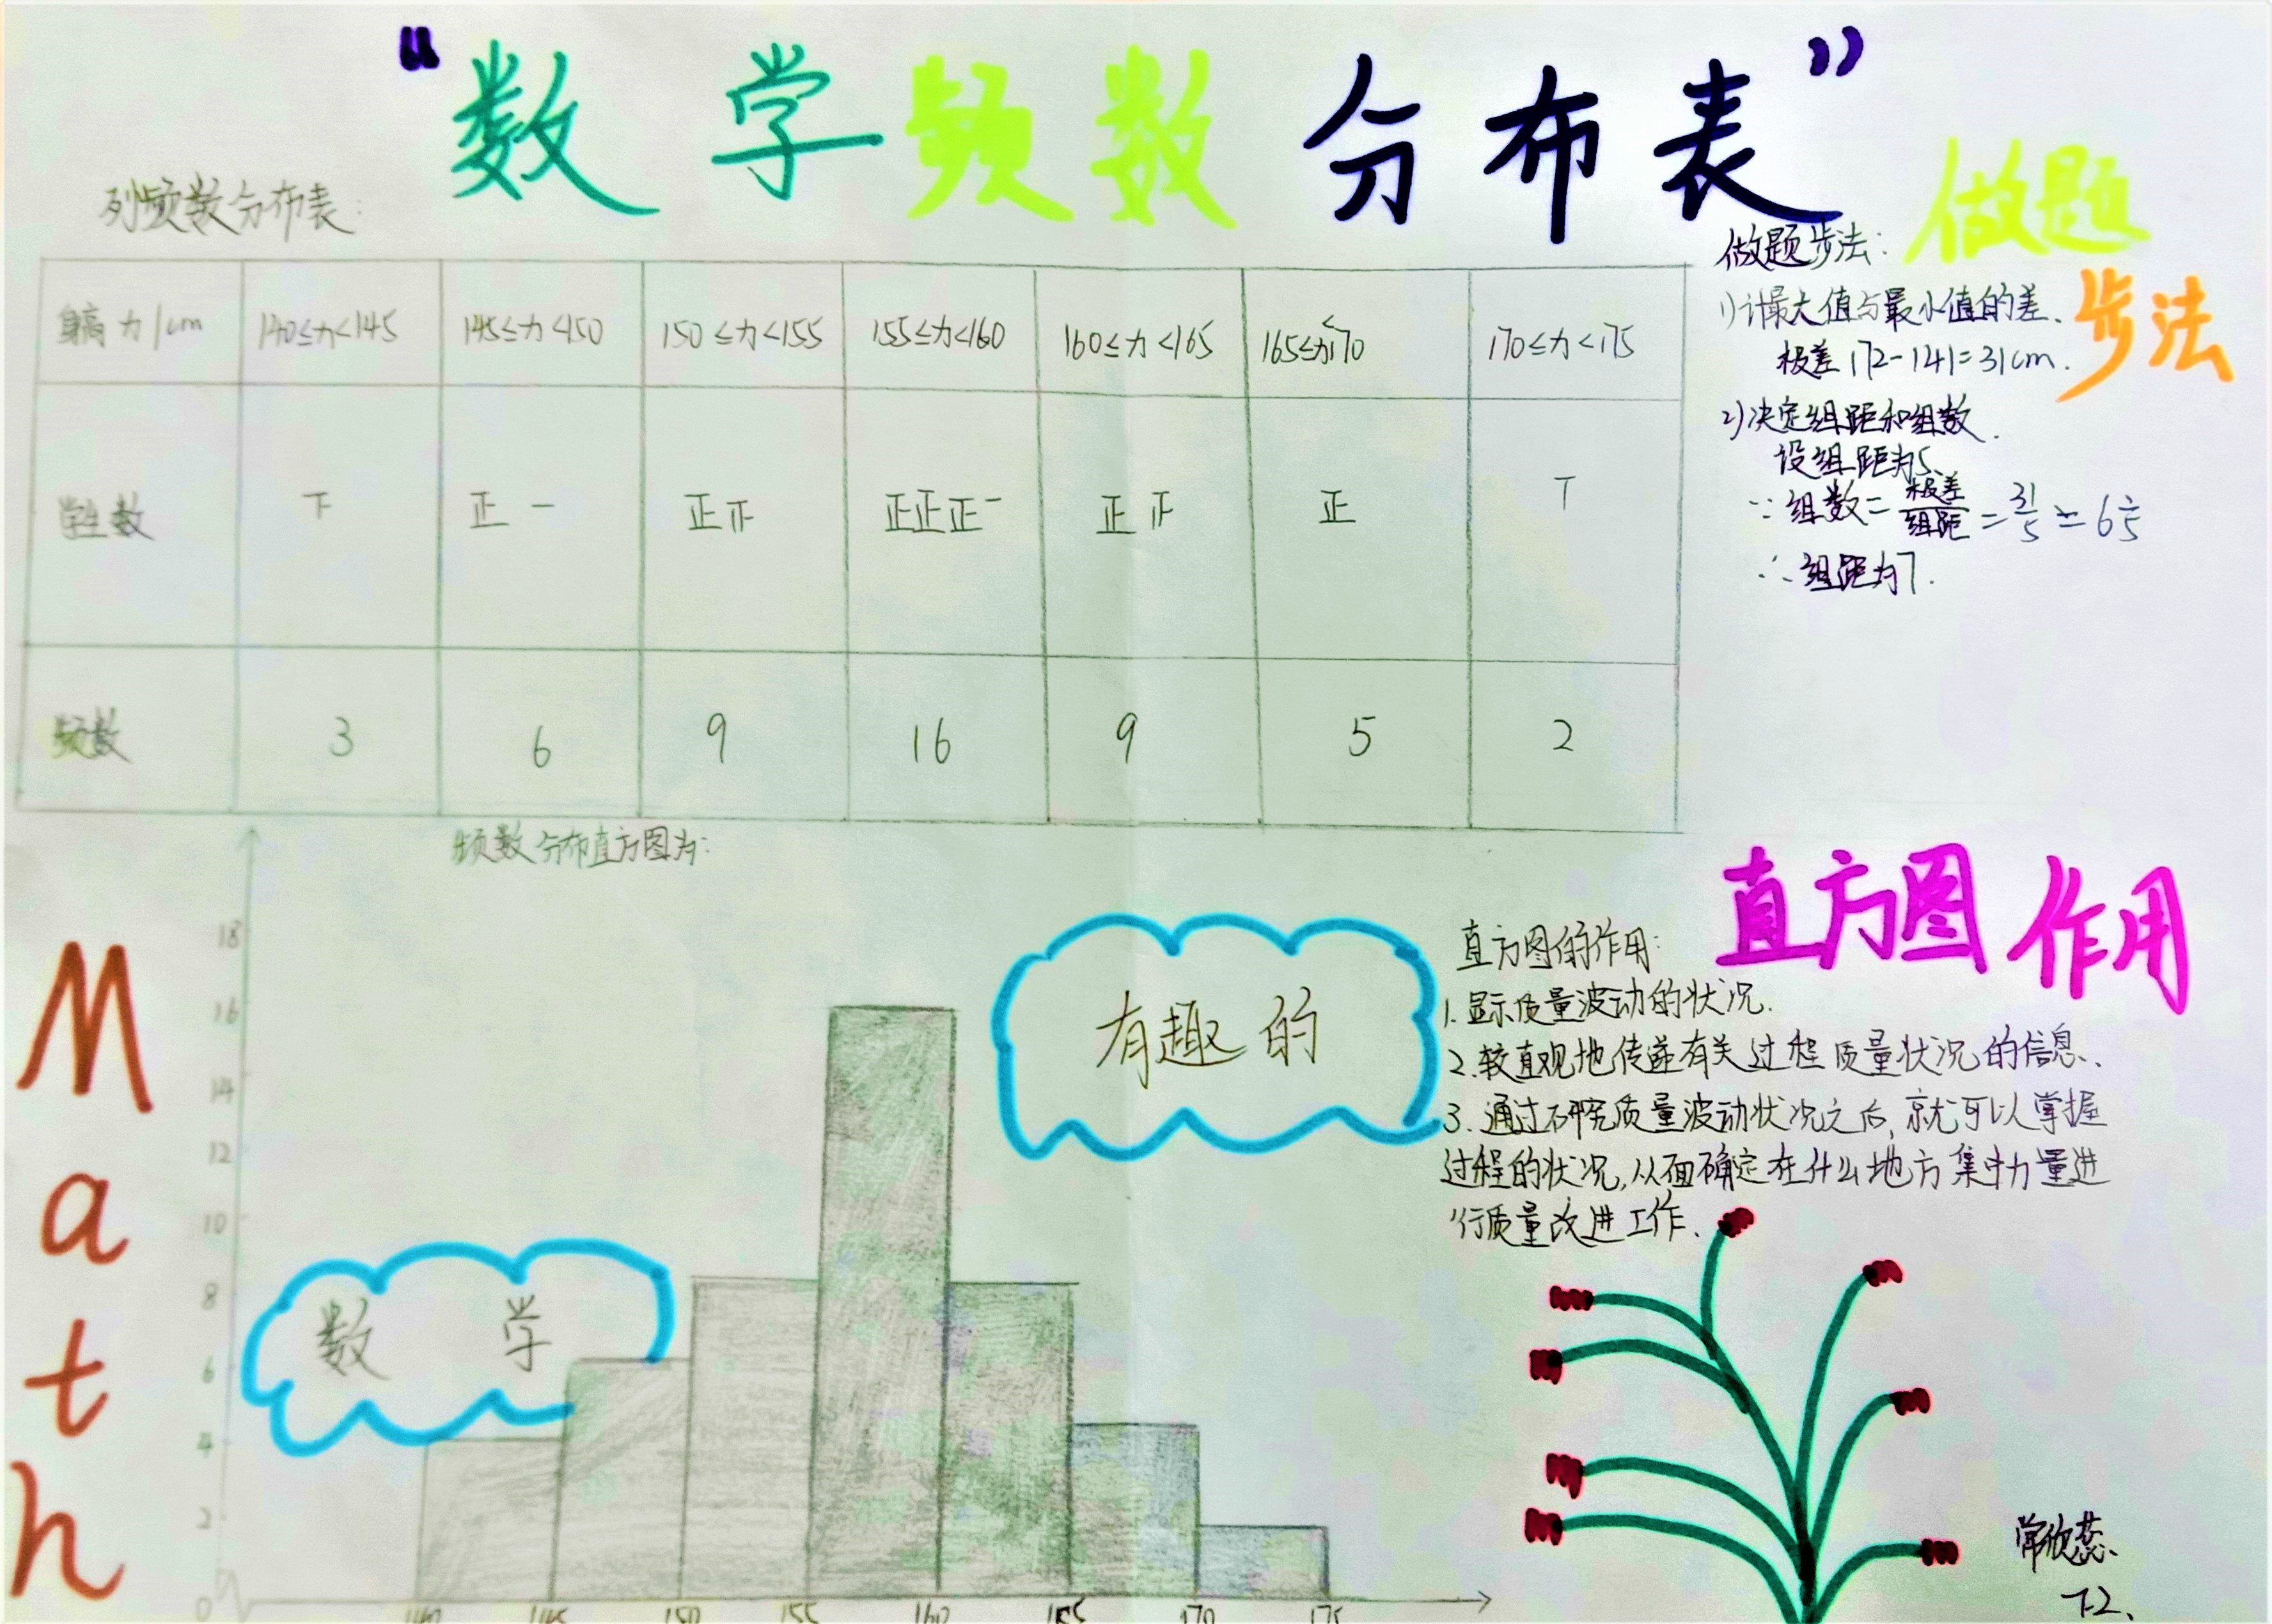 “数学频数分布表”
列频数分布表:
身高 x/cm 140≤x<145 145≤x<150 150≤x<155 155≤x<160 160≤x<165 165≤x<170 170≤x<175
学生数 下 正一 正正 正正正一 正正 正 丅
频数 3 6 9 16 9 5 2
做题
步法
做题步法:
1)计最大值与最小值的差、
极差172-141=31cm.
2)决定组距和组数.
设组距为5、
∵组数=极差/组距=31/5=6 1/5
∴组距为7.
频数分布直方图为:
18
16
14
12
10
8
6
4
2
0
140 145 150 155 160 165 170 175
Math
数学
有趣的
直方图作用
直方图的作用:
1.显示质量波动的状况.
2.较直观地传递有关过程质量状况的信息、
3.通过研究质量波动状况之后,就可以掌握
过程的状况,从而确定在什么地方集中力量进
行质量改进工作.
常欣蕊、
72、